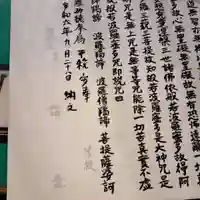 心無罣礙無罣礙故無有恐怖遠
三世諸佛依般若波羅蜜多故得阿
羅三藐三菩提故知般若波羅蜜多是大神咒是
咒是無上咒是無等等咒能除一切苦真實不虛
般若波羅蜜多咒即說咒曰
揭諦 波羅揭諦 波羅僧揭諦 菩提薩婆訶
令和六年九月二十日 納之